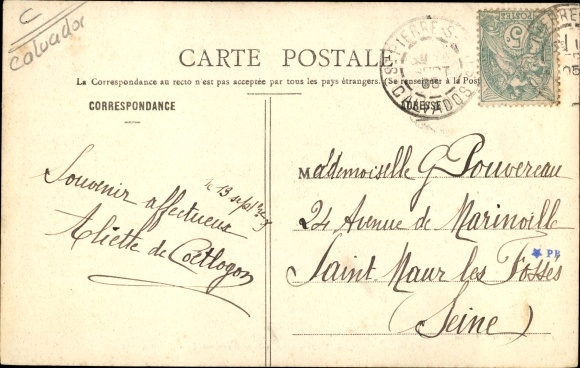 C
Calvados
CARTE POSTALE
La Correspondance au recto n'est pas acceptée par tous les pays étrangers. (Se renseigner à la Poste
CORRESPONDANCE
ADRESSE
le 13 sept 1905
Souvenir affectueux
Aliette de Coëtlogon
Mademoiselle G Pouvereau
24 Avenue de Marinville
Saint Maur les Fossés
(Seine)
PB
CALVADOS
POSTES
5